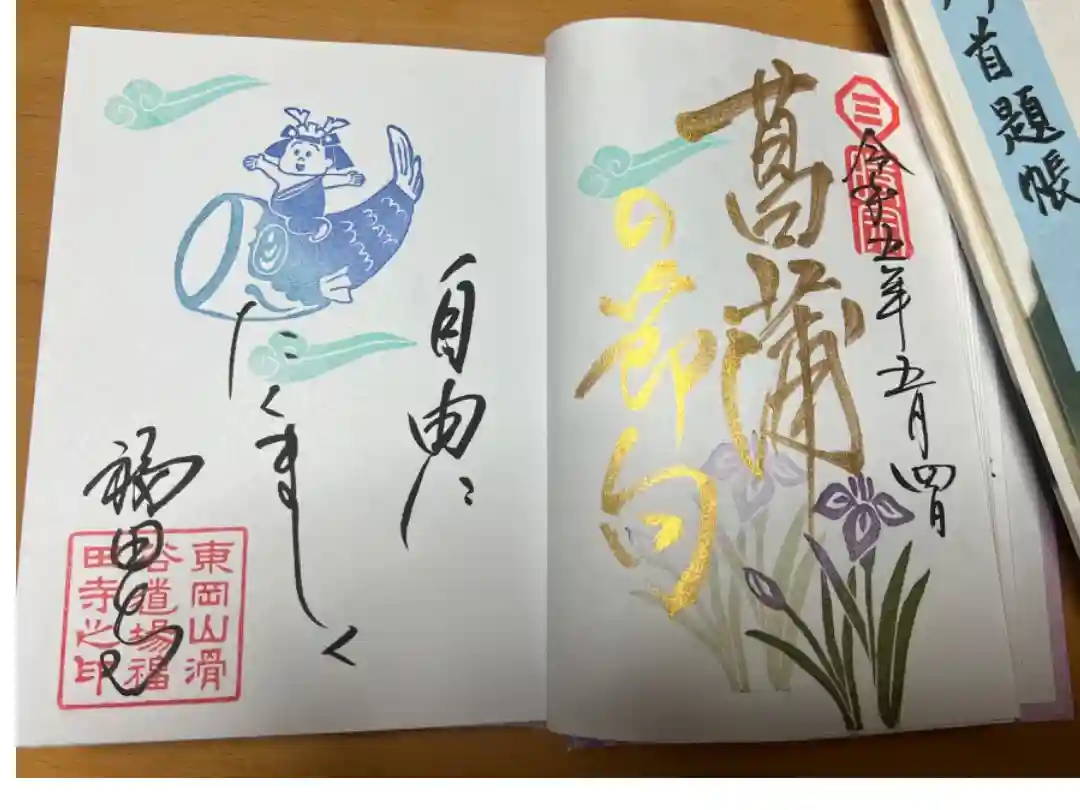 首題帳
三
令和五年五月四日
菖蒲
の節句
自由に
たくましく
福田寺
東岡山滑
谷道場福
田寺之印